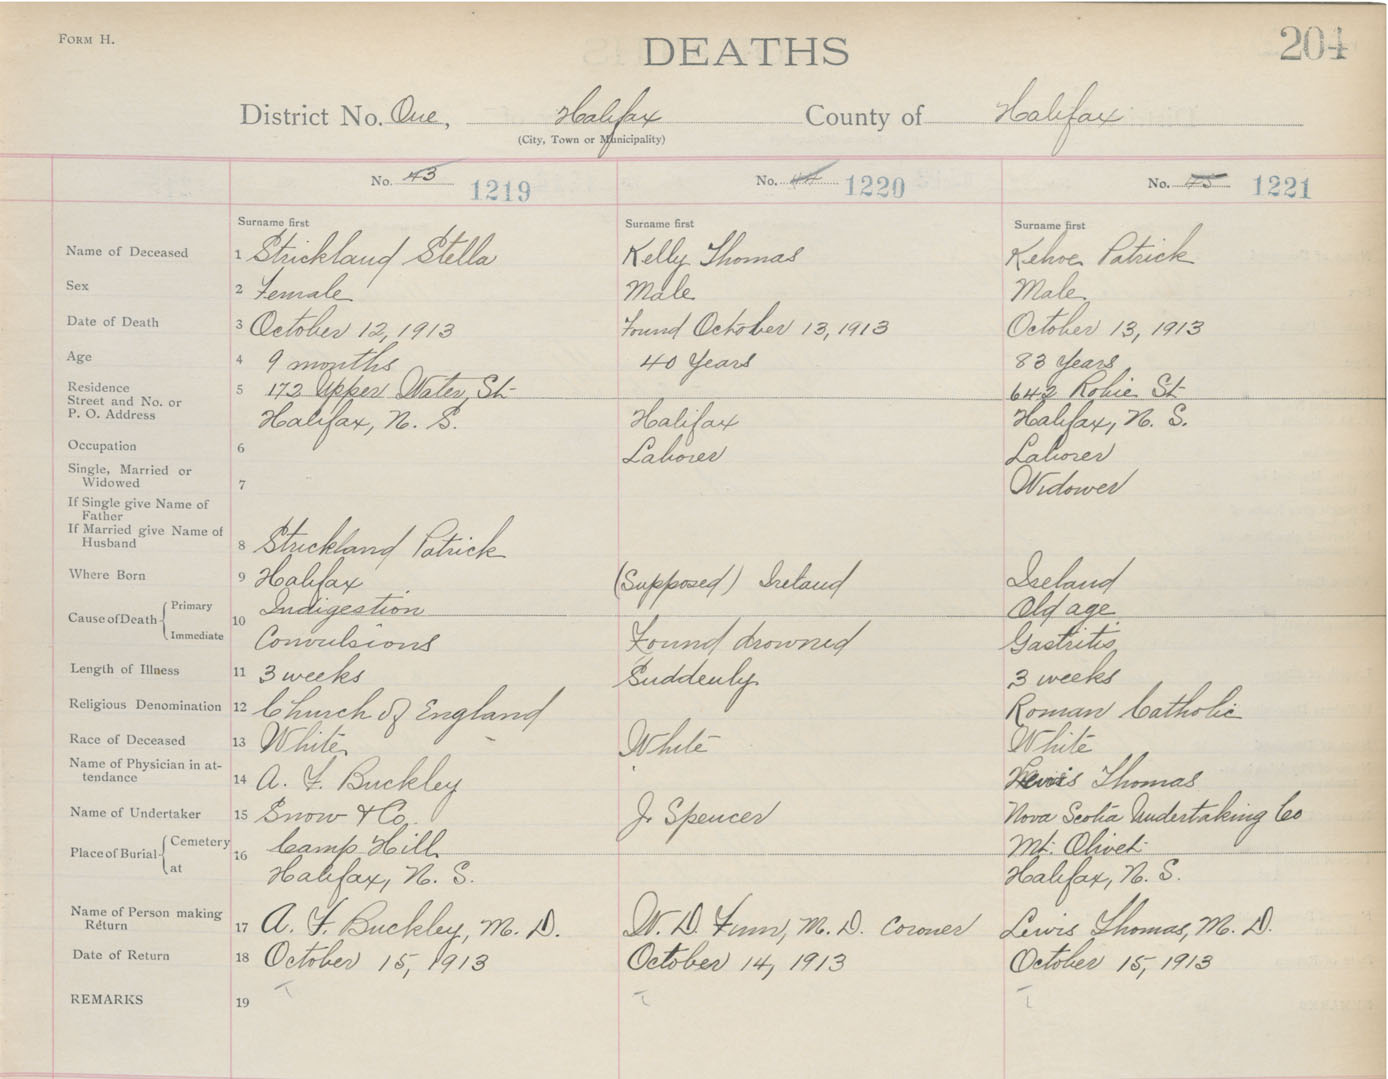 FORM H.
DEATHS
204
District No. One, Halifax County of Halifax
(City, Town or Municipality)
No. 43 1219 No. 44 1220 No. 45 1221
Surname first Surname first Surname first
Name of Deceased 1 Strickland Stella Kelly Thomas Kehoe Patrick
Sex 2 Female Male Male
Date of Death 3 October 12, 1913 Found October 13, 1913 October 13, 1913
Age 4 9 months 40 Years 83 Years
Residence 5 172 Upper Water St 642 Robie St
Street and No. or
P. O. Address Halifax, N. S. Halifax Halifax, N. S.
Occupation 6 Laborer Laborer
Single, Married or
Widowed 7 Widower
If Single give Name of
Father
If Married give Name of
Husband 8 Strickland Patrick
Where Born 9 Halifax (Supposed) Ireland Ireland
Cause of Death Primary 10 Indigestion Old age
Immediate Convulsions Found drowned Gastritis
Length of Illness 11 3 weeks Suddenly 3 weeks
Religious Denomination 12 Church of England Roman Catholic
Race of Deceased 13 White White White
Name of Physician in at-
tendance 14 A. F. Buckley Lewis Thomas
Name of Undertaker 15 Snow & Co. J. Spencer Nova Scotia Undertaking Co
Place of Burial Cemetery 16 Camp Hill Mt. Olivet
at Halifax, N. S. Halifax, N. S.
Name of Person making
Return 17 A. F. Buckley, M. D. W. D. Finn, M. D. Coroner Lewis Thomas, M. D.
Date of Return 18 October 15, 1913 October 14, 1913 October 15, 1913
REMARKS 19